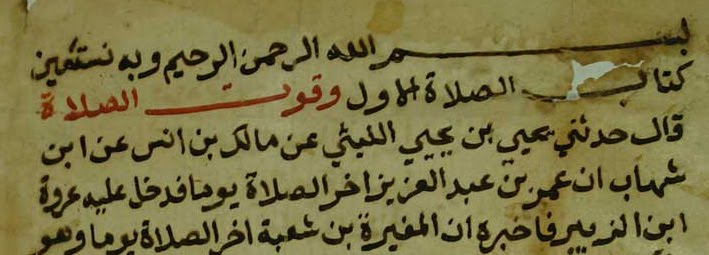 بسم الله الرحمن الرحيم وبه نستعين
كتاب الصلاة الاول وقوت الصلاة
قال حدثني يحيى بن يحيي الليثي عن مالك بن انس عن ابن
شهاب ان عمر بن عبد العزيز اخر الصلاة يوما فدخل عليه عروة
ابن الزبير فاخبره ان المغيرة بن شعبة اخر الصلاة يوما وهو